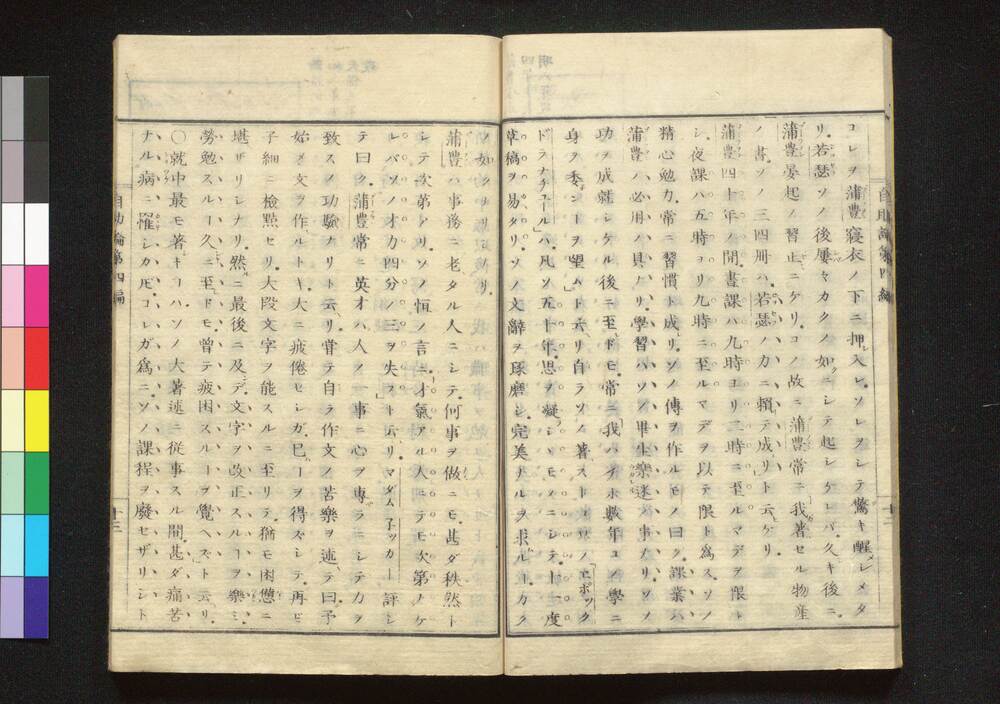 コレヲ蒲豊寝衣ノ下ニ押入レ。ソレヲシテ驚キ醒メシメタ
リ。若瑟ソノ後屢々カクノ如クニシテ起シケレバ。久キ後ニ。
蒲豊晏起ノ習止ニケリ。コノ故ニ蒲豊常ニ我著セル物産
ノ書。ソノ三四冊ハ。若瑟ノ力ニ頼テ成リト云ケリ。
蒲豊四十年ノ間。書課ハ九時ヨリ二時ニ至ルマデヲ限ト
シ。夜課ハ五時ヨリ九時ニ至ルマデヲ以テ限ト為ス。ソノ
精心勉力。常ニ習慣ト成リ。ソノ傳ヲ作ルモノ曰ク。課業ハ
蒲豊ノ必用ノ具ナリ。學習ハソノ畢生樂迷ノ事ナリ。ソノ
功ヲ成就シケル後ニ至ドモ。常ニ我ハナホ數年ユノ學ニ
身ヲ委ンヿヲ望ムト云リ自ラソノ著ストコロノエポック
ドラナチュールハ。凡ソ五十年。思ヲ凝シシモノニシテ。十一度
草稿ヲ易タリ。ソノ文辭ヲ琢磨シ。完美ナルヲ求ルヿカク
ノ如クナリ。
蒲豊ハ事務ニ老タル人ニシテ。何事ヲ做ニモ。甚ダ秩然ト
シテ次第アリ。ソノ恒ノ言ニ。才氣アル人ニテモ次第ナケ
レバ。ソノ才力四分ノ三ヲ失フト云リ。マダム子ッカー評シ
テ曰ク。蒲豊常ニ英才ハ人ノ一事ニ心ヲ專ラニシテカヲ
致スノ功驗ナリト云リ。嘗テ自ラ作文ノ苦樂ヲ述テ曰予
始メ文ヲ作ルトキ。大ニ疲倦セシガ。已ヿヲ得ズシテ。再ビ
子細ニ檢點セリ。大段文字ヲ能スルニ至リテ。猶モ困憊ニ
堪ザリシナリ。然ニ最後ニ及デ。文字ヲ改正スルヿヲ樂ミ。
勞勉スルヿ久ニ至ドモ。曾テ疲困スルヿヲ覺ヘズト云リ。
〇就中最モ著キヿハ。ソノ大著述ニ從事スル間。甚ダ痛苦
ナル病ニ罹シカ𪜈。コレガ為ニ。ソノ課程ヲ廢セザリシト
自助論第四編
十三